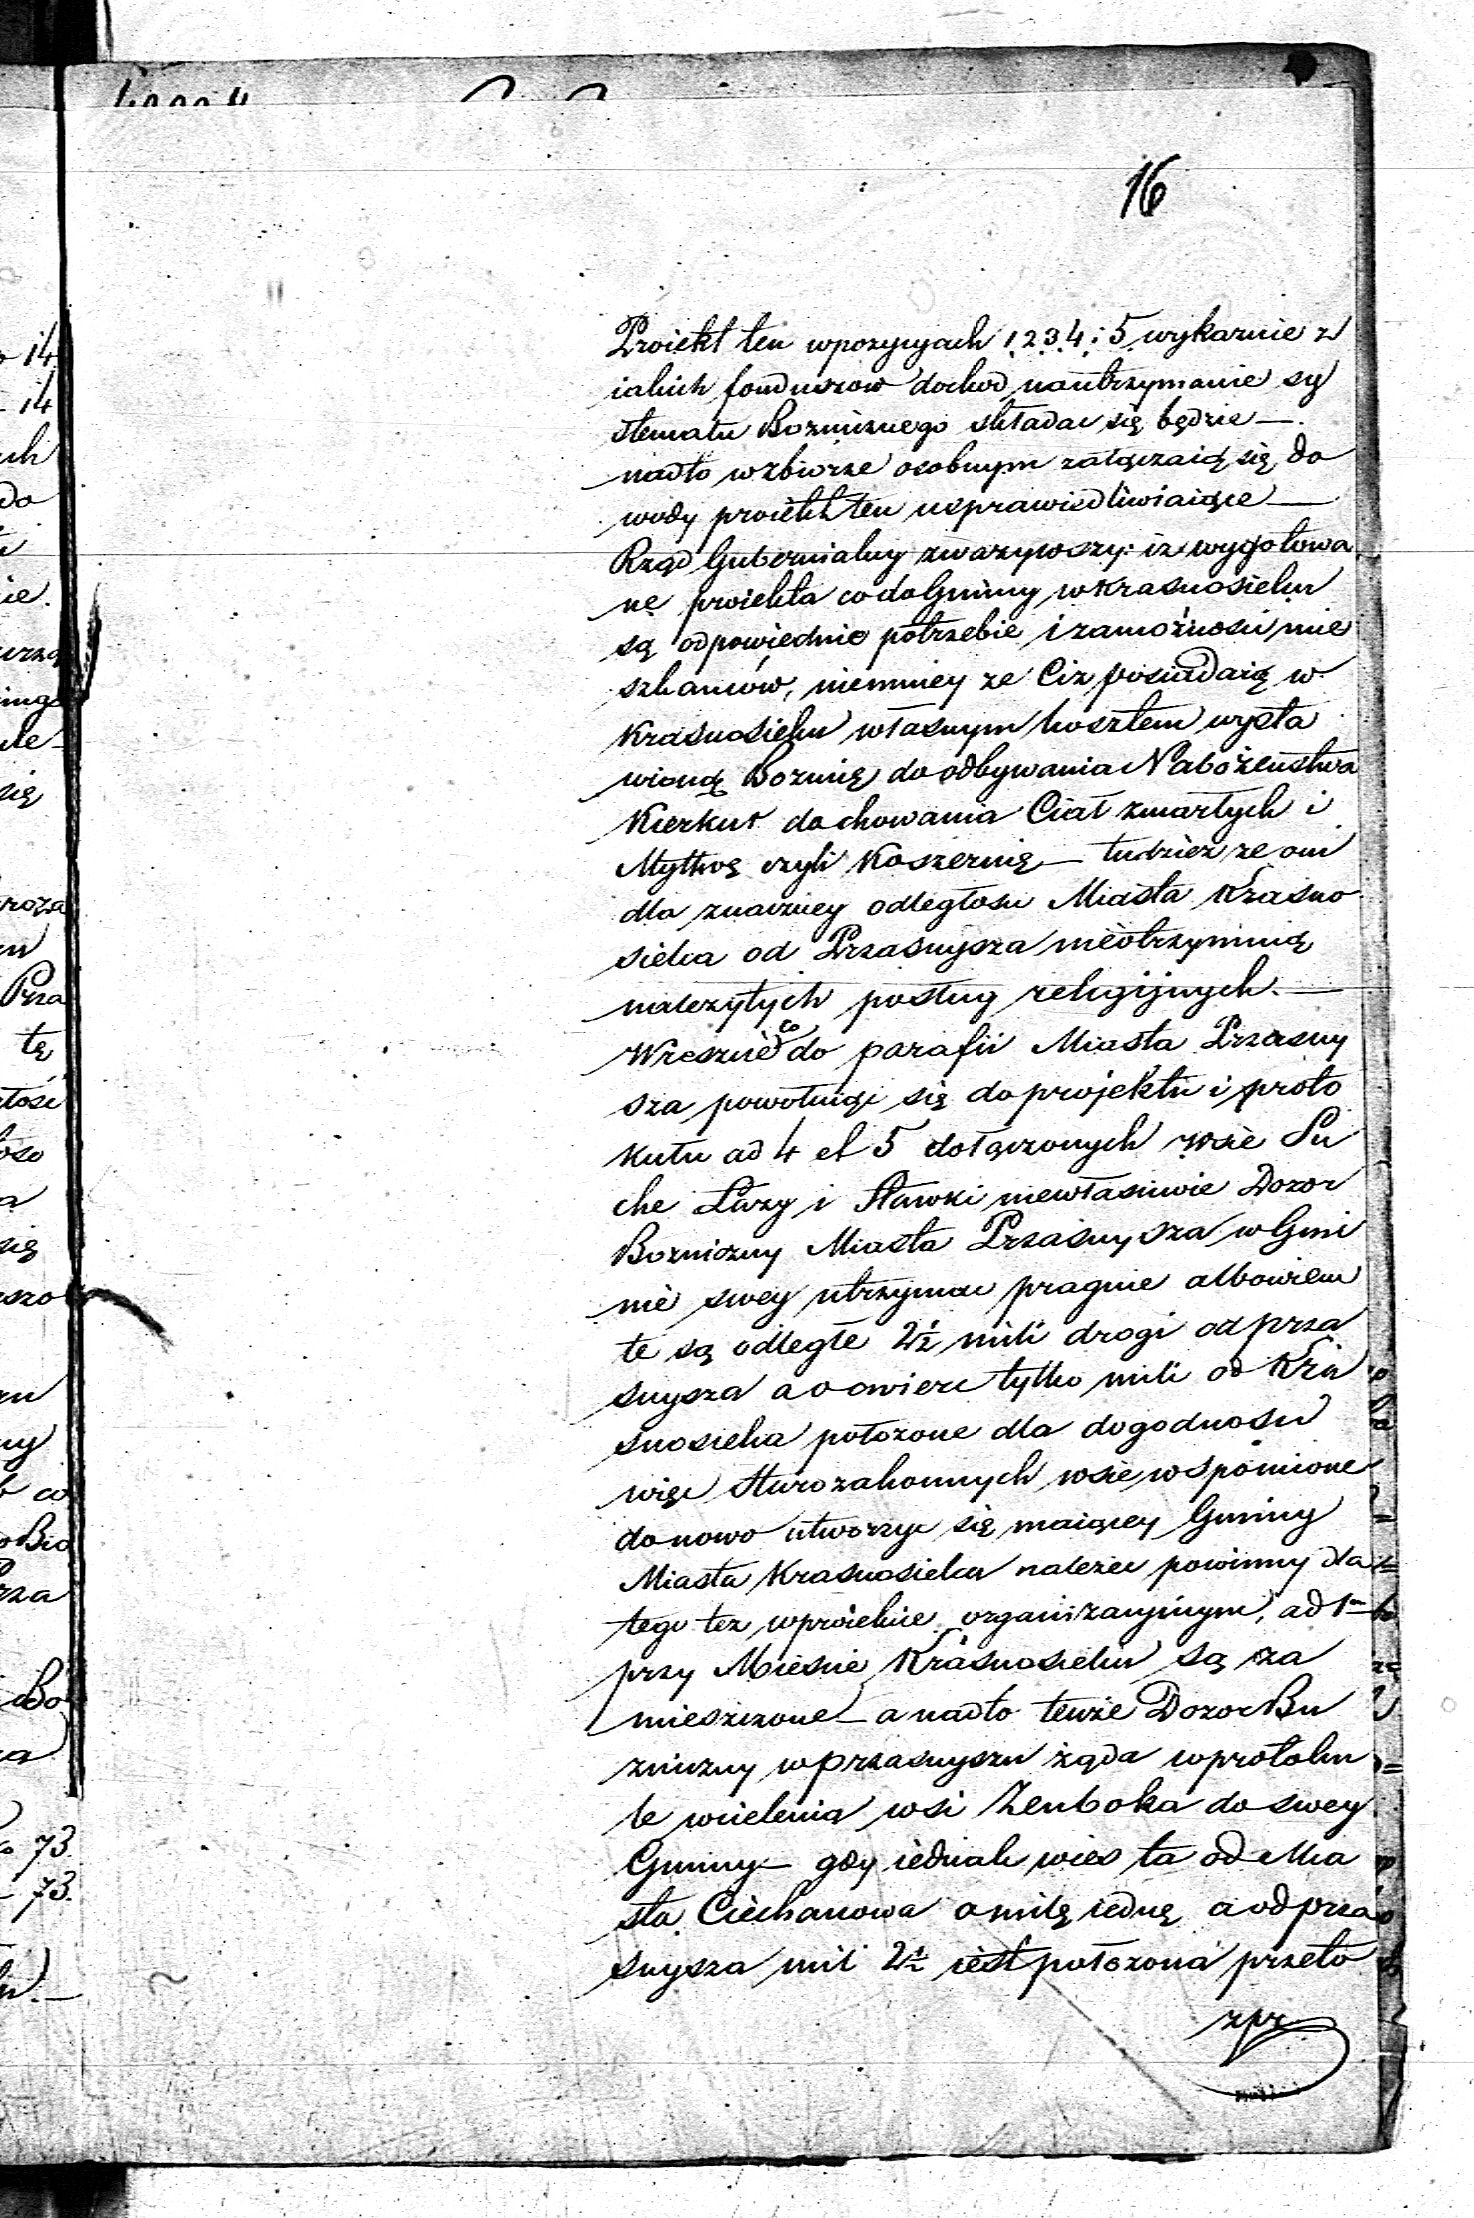 16
Proiekt ten wpozycyach 1. 2. 3. 4. i 5. wykazuie z
iakich fonduszow dochod nautrzymanie sy
stematu Bozniznego składac się będzie —
nadto w zbiorze osobnym załączaią się do
wody proiekt ten usprawiedliwiaiące —
Rząd Gubernialny zwazywszy: iz wygotowa
ne proiekta co do Gminy w Krasnosielcu
są odpowiednie potrzebie i zamożnosci mie
szkancow, niemniey ze Ciz posiadaią w
Krasnosielcu własnym kosztem wysta
wioną Boznię do odbywania Nabożeństwa
Kierkut do chowania Ciał zmarłych i
Mykwę czyli Koszernię — tudzież ze oni
dla znaczney odległosci Miasta Krasno
sielca od Przasnysza nieotrzymuią
nalezytych posług religijnych. —
Wreszcie co do parafii Miasta Przasny
sza powołuiąc się do projektu i proto
kułu ad 4 et 5 dołączonych wsie Su
che Łazy i Sławki niewłasciwie Dozor
Bozniczny Miasta Przasnysza w Gmi
nie swey utrzymac pragnie albowiem
te są odległe 2½ mili drogi od Prza
snysza a o cwierc tylko mili od Kra
snosielca położone dla dogodnosci
więc Starozakonnych wsie wspomione
do nowo utworzyc się maiącey Gminy
Miasta Krasnosielca nalezec powinny dla
tego tez w proiekcie organizacyinym, ad 1m
przy Miescie Krasnosielcu są za
mieszczone — a nadto tenże Dozor Bo
zniczny w Przasnyszu żąda w protoku
le wcielenia wsi Zenboka do swey
Gminy — gdy iednak wies ta od Mia
sta Ciechanowa o milę iedną a od Prza
snysza mil 2½ iest położona przeto
zpr